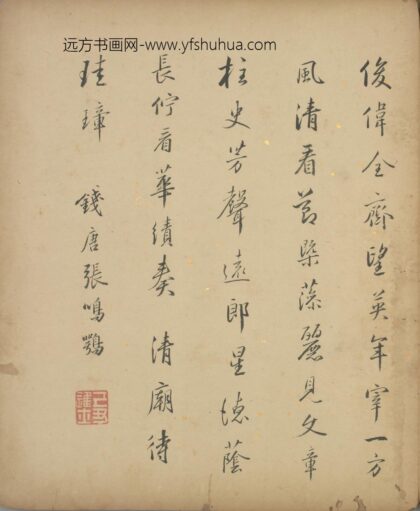 远方书画网-www.yfshuhua.com
俊偉全齊望英年宰一方
風清看節槩藻麗見文章
柱史芳聲遠郎星德蔭
長佇看華績奏清廟待
珪璋
錢唐張鳴鶚